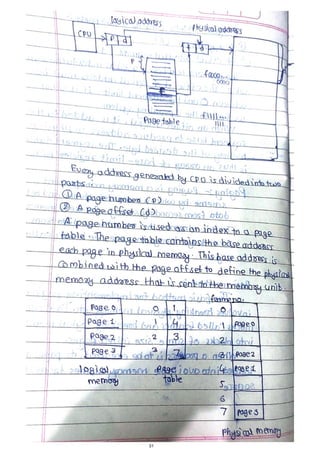 logical address
Physical address
CPU
P d
f d
f0000...
0000
P
f
f1111...
1111
Page table
Every address generated by CPU is divided into two
parts
① A page number (P)
② A Page offset (d)
A page number is used as an index to a page
table. The page table contains the base address
each page in physical memory. This base address is
combined with the page offset to define the physical
memory address that is sent to the memory unit
frame no.
Page 0 0 1 0
Page 1 1 4 1 Page 0
Page 2 2 3 2
Page 3 3 7 3 Page 2
logical Page 4 Page 1
memory table 5
6
7 Page 3
Physical memory
51